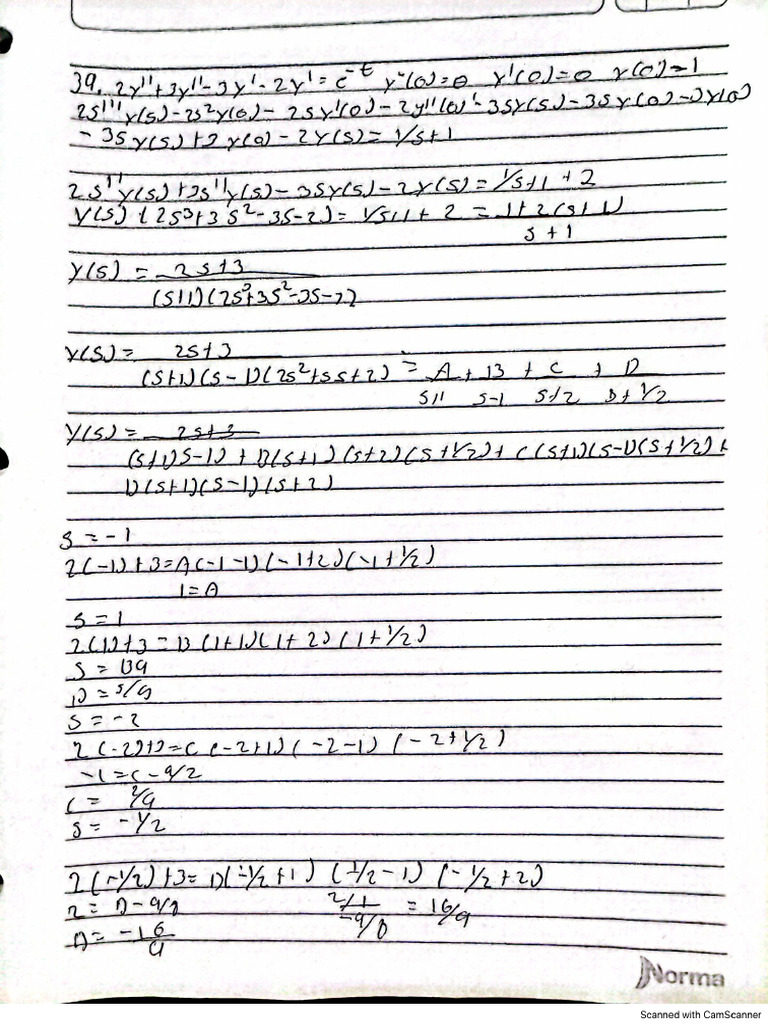 39. 2y''' + 3y'' - 3y' - 2y' = e^-t y''(0) = 0 y'(0) = 0 y(0) = 1
2S''' y(s) - 2s²y(0) - 2sy'(0) - 2y''(0) - 3Sy(s) - 3sy(0) - 3y(0)
- 3S y(s) + 3y(0) - 2y(s) = 1/s+1
2S''' y(s) + 3s'' y(s) - 3sy(s) - 2y(s) = 1/s+1 + 2
y(s) (2s³+3s²-3s-2) = 1/s+1 + 2 = 1+2(s+1)
s+1
y(s) = 2s+3
(s+1)(2s³+3s²-3s-2)
y(s) = 2s+3
(s+1)(s-1)(2s²+5s+2) = A + B + C + D
s+1 s-1 s+2 s+1/2
y(s) = 2s+3
(s+1)(s-1) + B(s+1)(s+2)(s+1/2) + C(s+1)(s-1)(s+1/2) +
D(s+1)(s-1)(s+2)
s = -1
2(-1)+3 = A(-1-1)(-1+2)(-1+1/2)
1 = A
s = 1
2(1)+3 = B(1+1)(1+2)(1+1/2)
5 = B9
B = 5/9
s = -2
2(-2)+3 = C(-2+1)(-2-1)(-2+1/2)
-1 = C-9/2
C = 2/9
s = -1/2
2(-1/2)+3 = D(-1/2+1) (-1/2-1) (-1/2+2)
2 = D-9/8 2/1 / -9/8 = 16/9
D = -16/9
Norma
Scanned with CamScanner